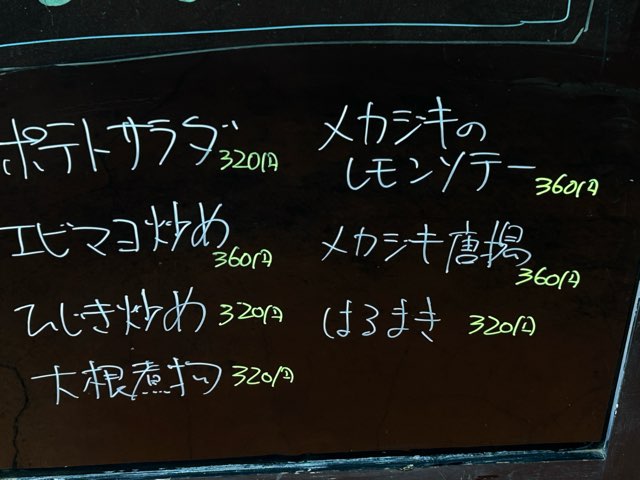 ポテトサラダ 320円
エビマヨ炒め 360円
ひじき炒め 320円
大根煮物 320円
メカジキの
レモンソテー 360円
メカジキ唐揚 360円
はるまき 320円